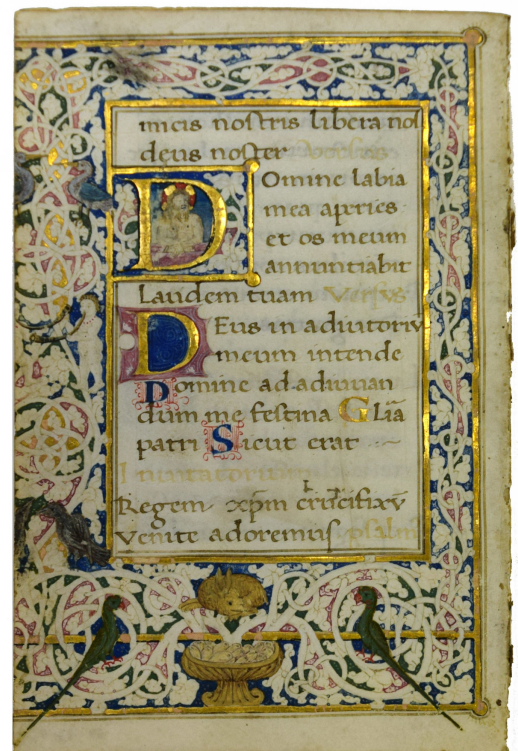 inicis nostris libera nos
deus noster Versus
Domine labia
mea aperies
et os meum
annuntiabit
Laudem tuam Versus
Deus in adiutoriū
meum intende
Domine ad adiuuan
dum me festina Gl̄ia
patri Sicut erat
Inuitatorium
Regem xp̄m crucifixū
Venite adoremus psalm